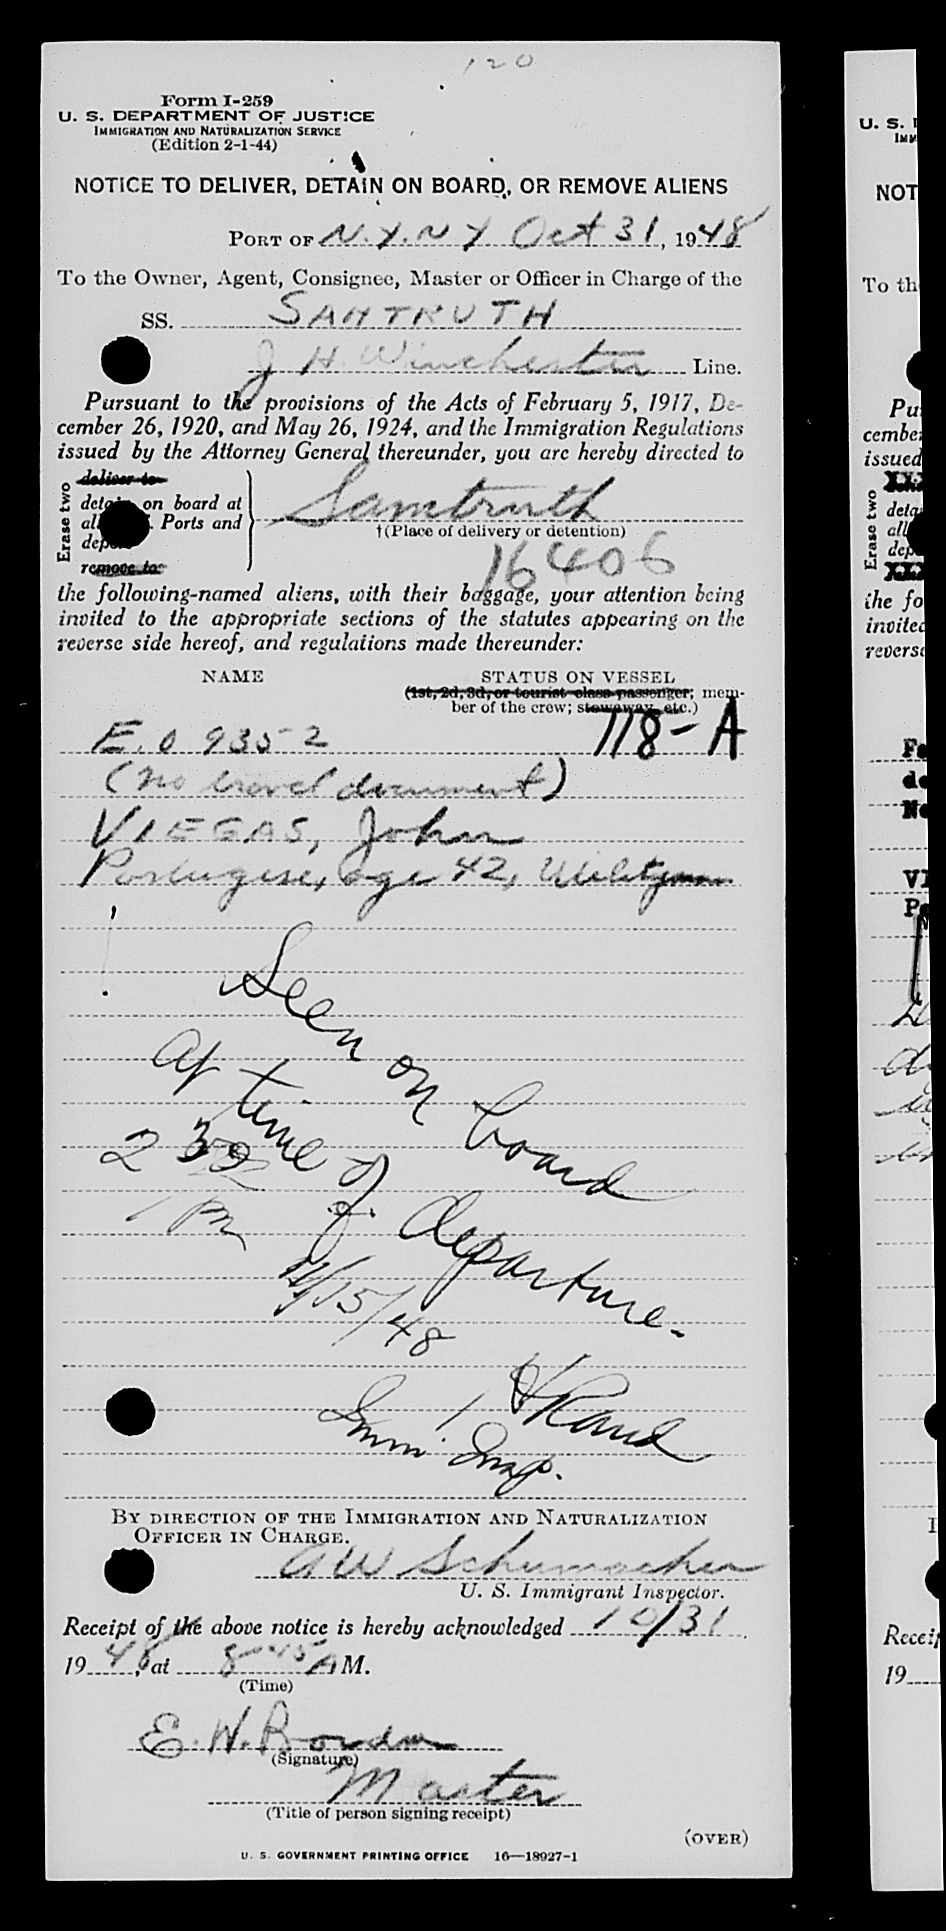 120
Form I-259
U. S. DEPARTMENT OF JUSTICE
IMMIGRATION AND NATURALIZATION SERVICE
(Edition 2-1-44)
NOTICE TO DELIVER, DETAIN ON BOARD, OR REMOVE ALIENS
PORT OF N.Y. N Y Oct 31, 1948
To the Owner, Agent, Consignee, Master or Officer in Charge of the
SS. SAMTRUTH
J H. Winchester Line.
Pursuant to the provisions of the Acts of February 5, 1917, De-
cember 26, 1920, and May 26, 1924, and the Immigration Regulations
issued by the Attorney General thereunder, you are hereby directed to
Erase two
deliver to
detain on board at
all Ports and
remove to
Samtruth
†(Place of delivery or detention)
16406
the following-named aliens, with their baggage, your attention being
invited to the appropriate sections of the statutes appearing on the
reverse side hereof, and regulations made thereunder:
NAME STATUS ON VESSEL
(1st, 2d, 3d, or tourist class passenger; mem-
ber of the crew; stowaway, etc.)
E.O 9352 118-A
(no travel document)
VIEGAS, John
Portugese, age 42, Utilityman
Seen on board
at time of departure.
2 30
PM
11/15/48
Rand
Imm. Insp.
BY DIRECTION OF THE IMMIGRATION AND NATURALIZATION
OFFICER IN CHARGE.
A W Schumacher
U. S. Immigrant Inspector.
Receipt of the above notice is hereby acknowledged 10/31
1948, at 8-45 A M.
(Time)
E. W.
(Signature)
Master
(Title of person signing receipt)
(OVER)
U. S. GOVERNMENT PRINTING OFFICE 16—18927-1
U. S.
NOT
To th
Pu
cember
issued
Erase two
the fo
invited
reverse
Receip
19